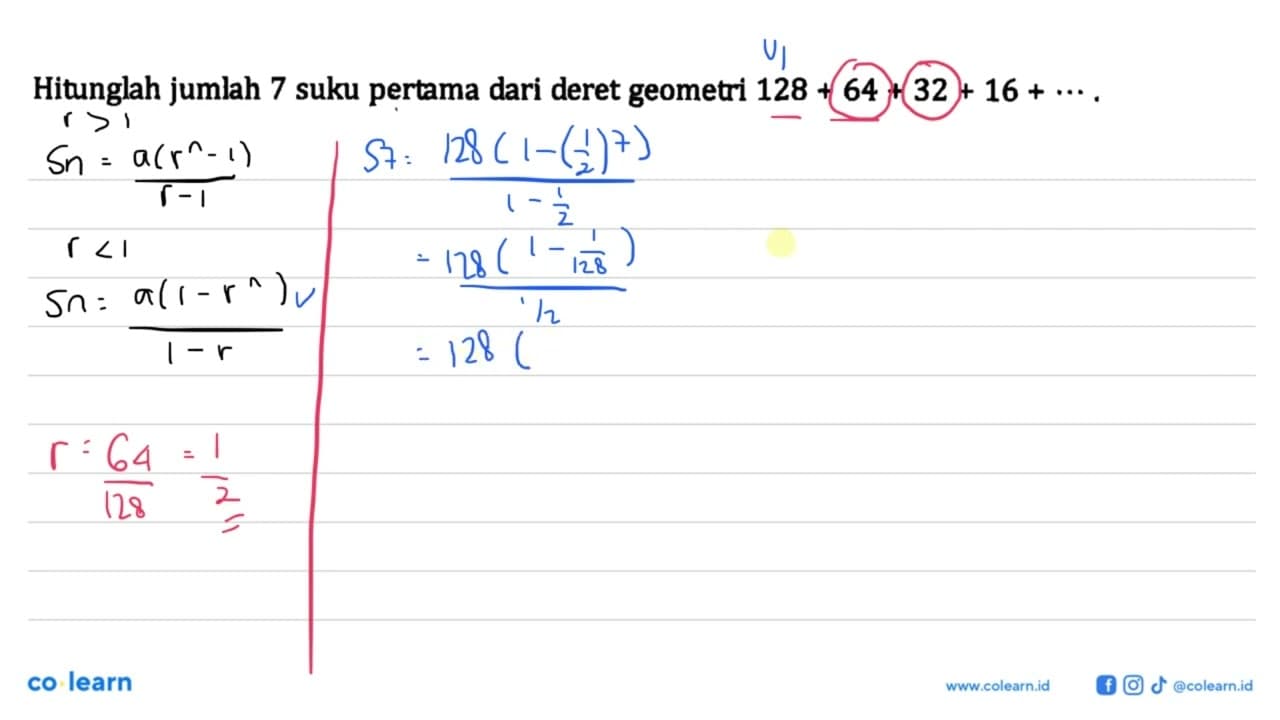 U1
Hitunglah jumlah 7 suku pertama dari deret geometri 128 + 64 + 32 + 16 + ⋯ .
r > 1
Sn = a(r^n - 1)
r - 1
r < 1
Sn = a(1 - r^n) ✓
1 - r
r = 64 = 1
128 2
S7 = 128 ( 1 - (1/2)^7 )
1 - 1/2
= 128 ( 1 - 1/128 )
1/2
= 128 (
co learn
www.colearn.id
@colearn.id